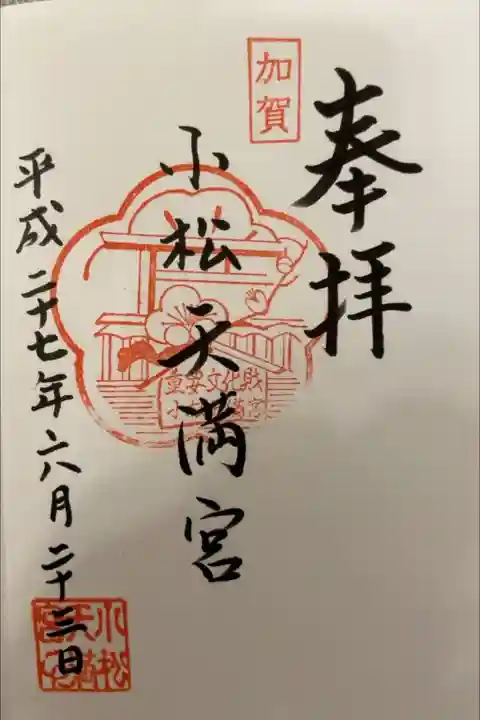 奉拝
加賀
小松天満宮
重要文化財
小松天満宮
平成二十七年六月二十三日
小松天満宮